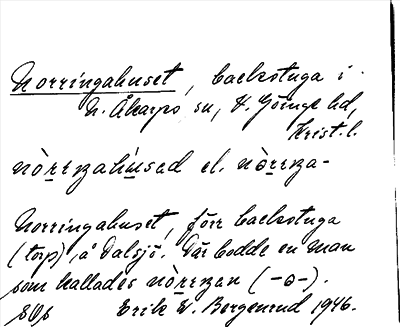 Norringahuset, backstuga i
N. Åkarps sn, V. Göinge hd,
Krist. l.
nòrrŋahu̇sad el. nòrrŋa-
Norringahuset, förr backstuga
(torp), å Dalsjö. Där bodde en man
som kallades nòrrŋan (-ə-).
Erik W. Bergenrud 1946.